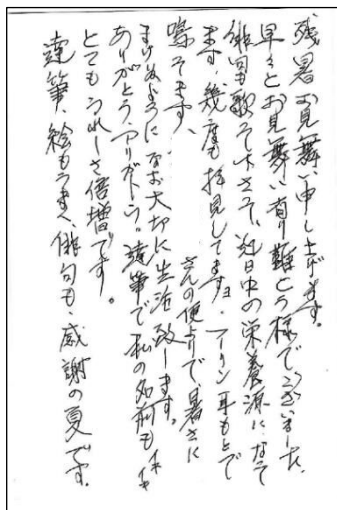 残暑お見舞い申し上げます。
早々とお見舞い有り難とう様でございました。
俳画も歌そ下さって、毎日中の栄養源になって
ます、幾度も拝見してますヨ・フーリン耳もとで
鳴ってます、 さんの便よりで、暑さに
まけぬようになお大切に生活致します。
ありがとう、アリガトウ!!達筆で私の名前もイキイキ
とてもうれしさ倍増です。
達筆、絵もうまく、俳句も、感謝の夏です。